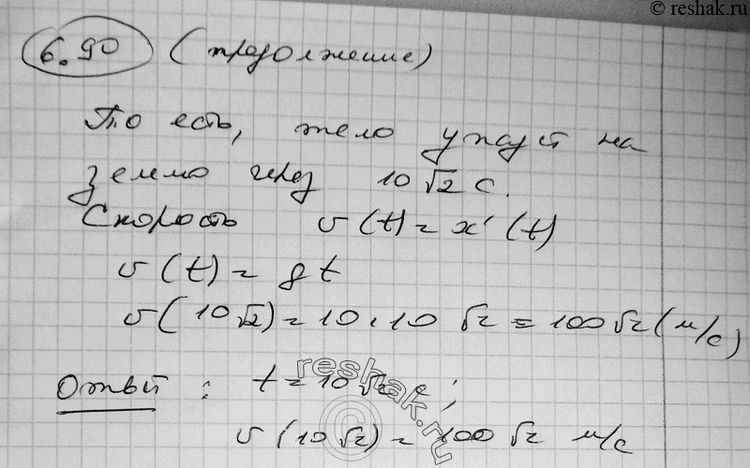 © reshak.ru
6.90 (продолжение)
То есть, тело упадёт на
землю через 10√2 с.
Скорость v(t) = x'(t)
v(t) = gt
v(10√2) = 10·10√2 = 100√2 (м/с)
Ответ: t = 10√2 с;
v(10√2) = 100√2 м/с
reshak.ru
©